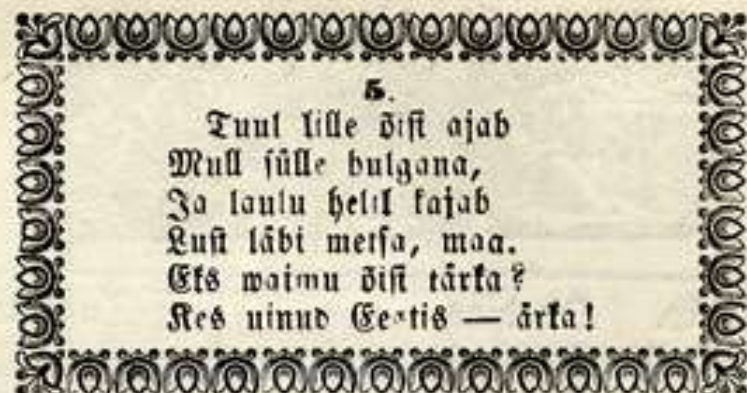 5.
Tuul lille õist ajab
Mull sülle hulgana,
Ja laulu helil kajab
Lust läbi metsa, maa.
Eks waimu õist tärka?
Kes uinud Eestis — ärka!